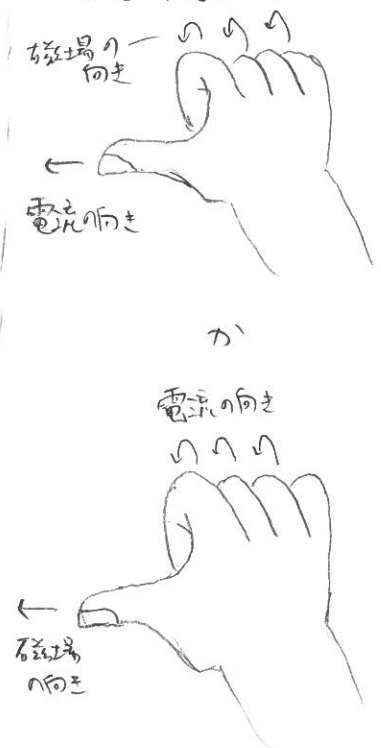 磁場の
向き
電流の向き
か
電流の向き
磁場
の向き